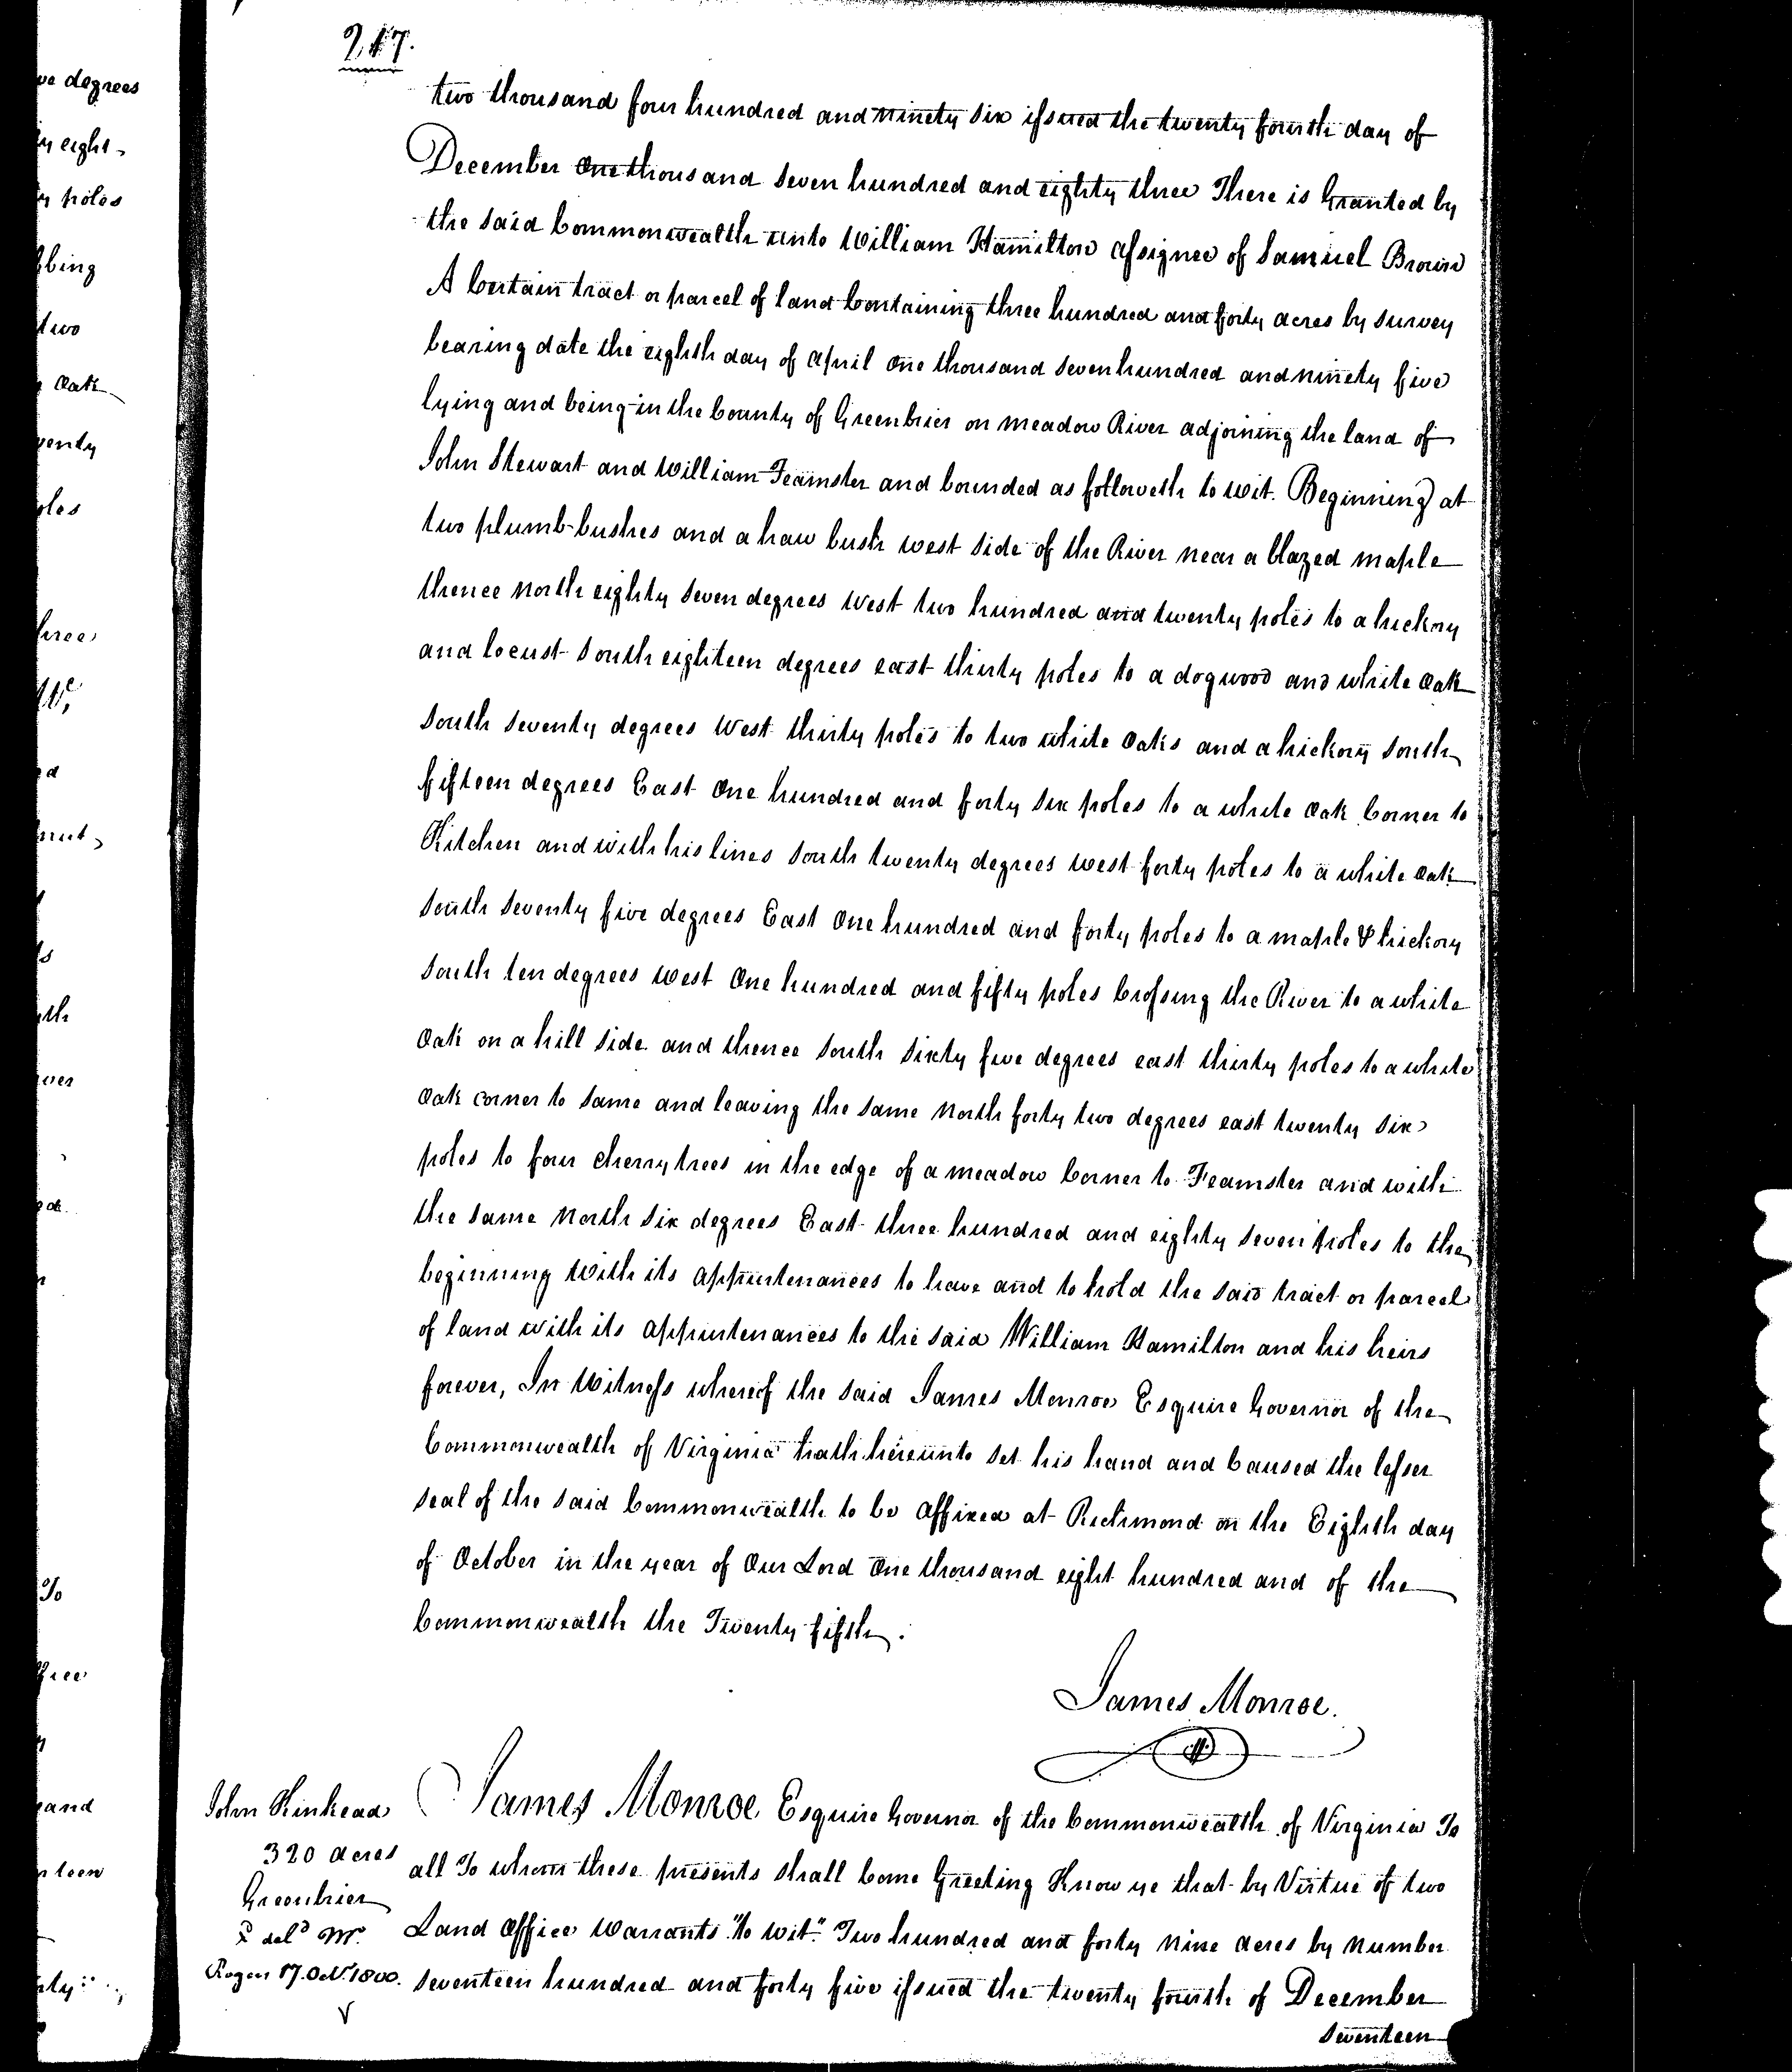 247.
two thousand four hundred and ninety six issued the twenty fourth day of
December One thousand seven hundred and eighty three There is Granted by
the said Commonwealth unto William Hamilton assignee of Samuel Brown
A Certain tract or parcel of land Containing three hundred and forty acres by survey
bearing date the eighth day of April One thousand seven hundred and ninety five
lying and being in the County of Greenbrier on meadow River adjoining the land of
John Stewart and William Feamster and bounded as followeth to wit. Beginning at
two plumb-bushes and a haw bush west side of the River near a blazed maple
thence North eighty seven degrees West two hundred and twenty poles to a hickory
and locust South eighteen degrees east thirty poles to a dogwood and white Oak
South seventy degrees West thirty poles to two white Oaks and a hickory South
fifteen degrees East One hundred and forty six poles to a white Oak Corner to
Kitchen and with his lines South twenty degrees west forty poles to a white Oak
South seventy five degrees East One hundred and forty poles to a maple & hickory
South ten degrees West One hundred and fifty poles Crossing the River to a white
Oak on a hill side and thence South sixty five degrees east thirty poles to a white
Oak corner to same and leaving the same North forty two degrees east twenty six
poles to four cherry trees in the edge of a meadow Corner to Feamster and with
the same North six degrees East three hundred and eighty seven poles to the
beginning With its appurtenances to have and to hold the said tract or parcel
of land with its appurtenances to the said William Hamilton and his heirs
forever, In Witness whereof the said James Monroe Esquire Governor of the
Commonwealth of Virginia hath hereunto set his hand and Caused the lesser
seal of the said Commonwealth to be affixed at Richmond on the Eighth day
of October in the year of Our Lord One thousand eight hundred and of the
Commonwealth the Twenty fifth.
James Monroe.
John Kinkead
320 acres
Greenbrier
deld Mr.
17. Oct. 1800.
James Monroe Esquire Governor of the Commonwealth of Virginia To
all To whom these presents shall Come Greeting Know ye that by Virtue of two
Land Office Warrants "to wit" Two hundred and forty Nine acres by Number
Seventeen hundred and forty five issued the twenty fourth of December
Seventeen